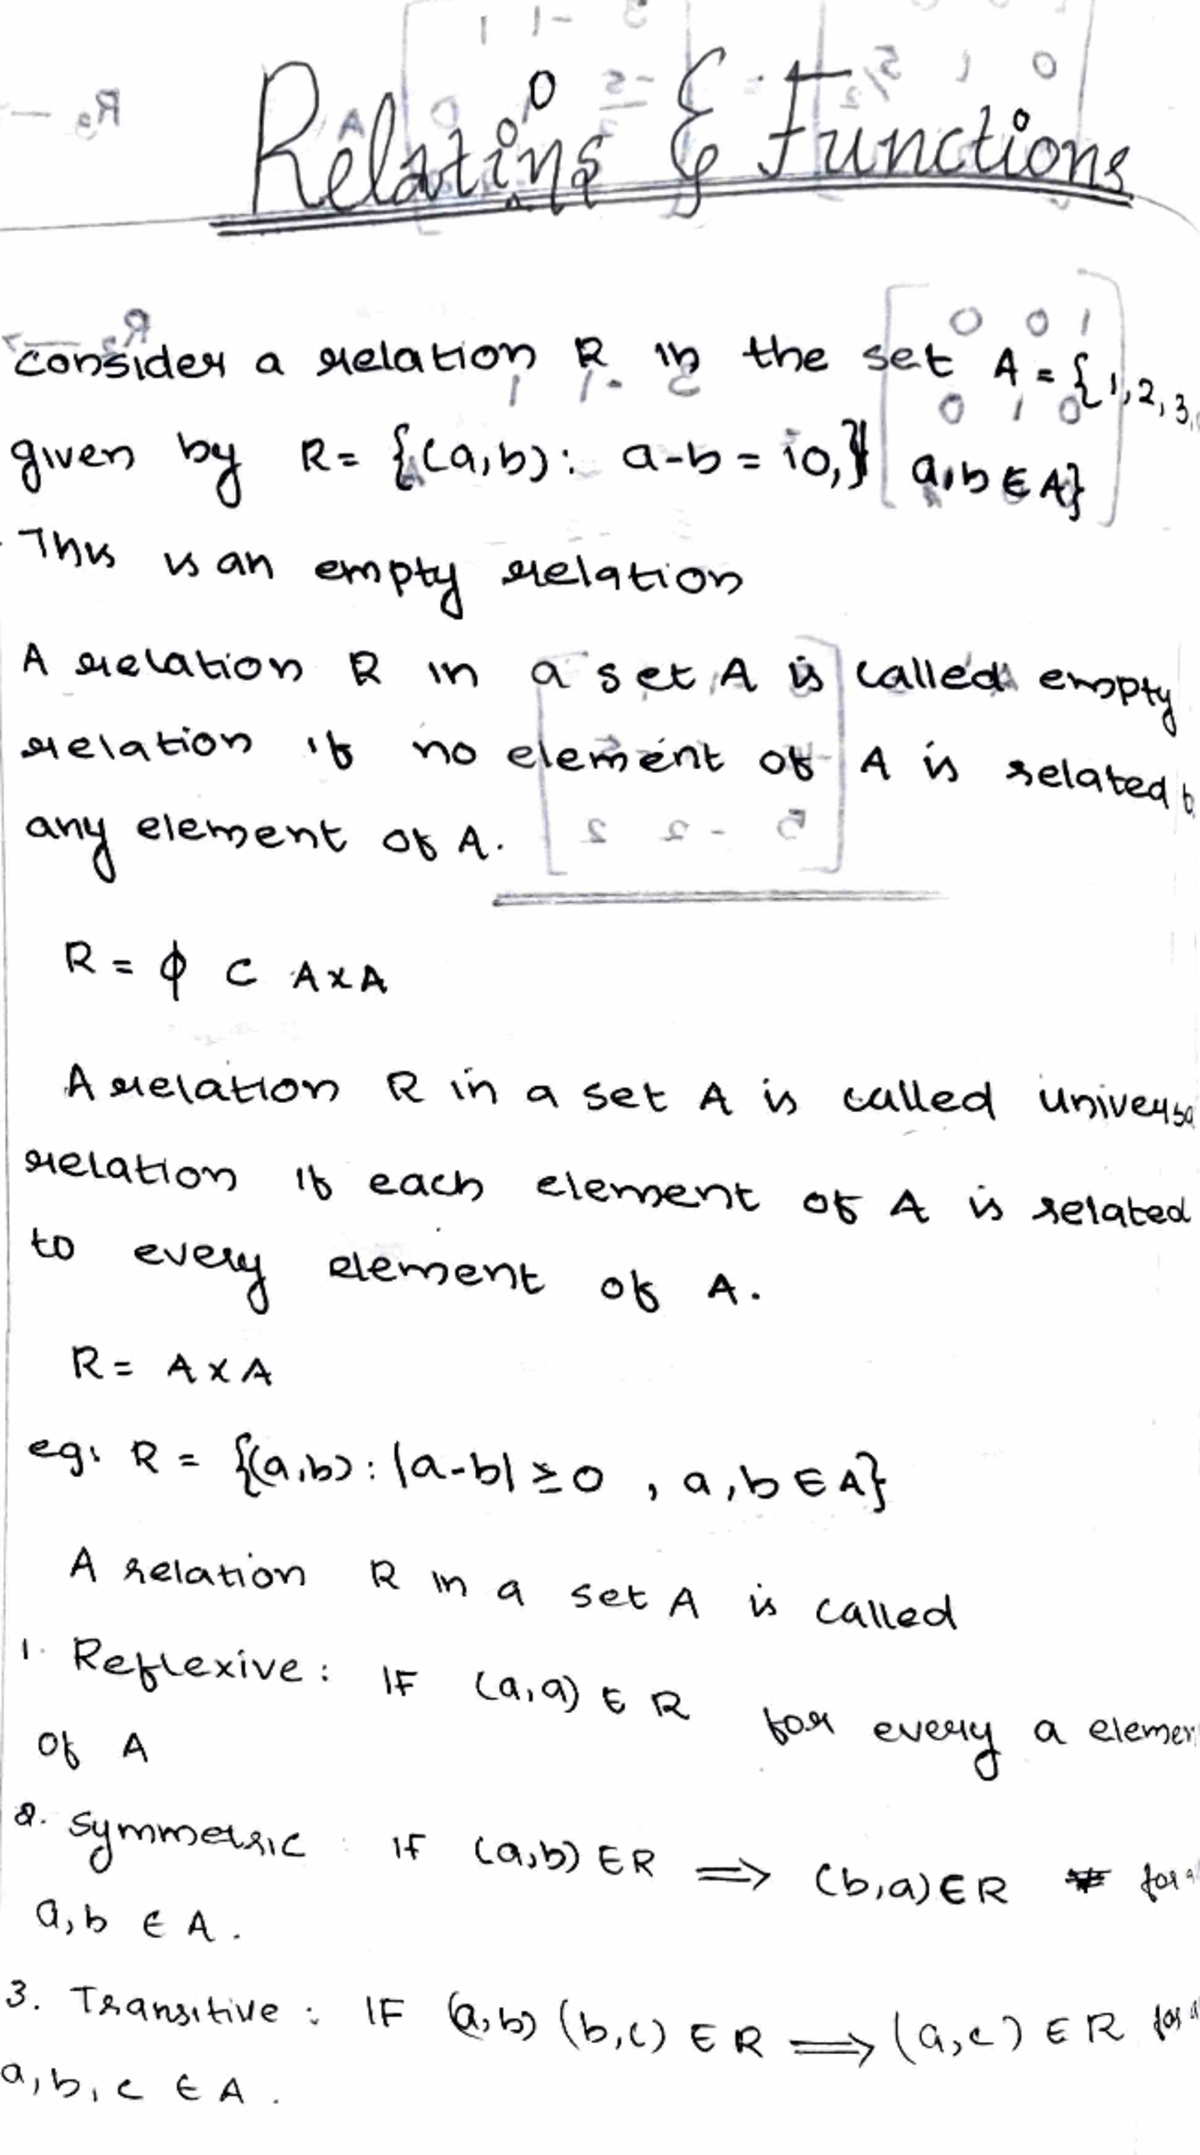 Relations & Functions
Consider a relation R in the set A = {1,2,3,
given by R = {(a,b): a-b = 10, a,b ∈ A}
This is an empty relation
A relation R in a set A is called empty
relation if no element of A is related t
any element of A.
R = ϕ ⊂ A×A
A relation R in a set A is called universa
relation if each element of A is related
to every element of A.
R = A×A
eg: R = {(a,b): |a-b| ≥ 0, a,b ∈ A}
A relation R in a set A is called
1. Reflexive: IF (a,a) ∈ R for every a elemen
of A
2. Symmetric: IF (a,b) ∈ R ⟹ (b,a) ∈ R for a
a,b ∈ A.
3. Transitive: IF (a,b) (b,c) ∈ R ⟹ (a,c) ∈ R for a
a,b,c ∈ A.